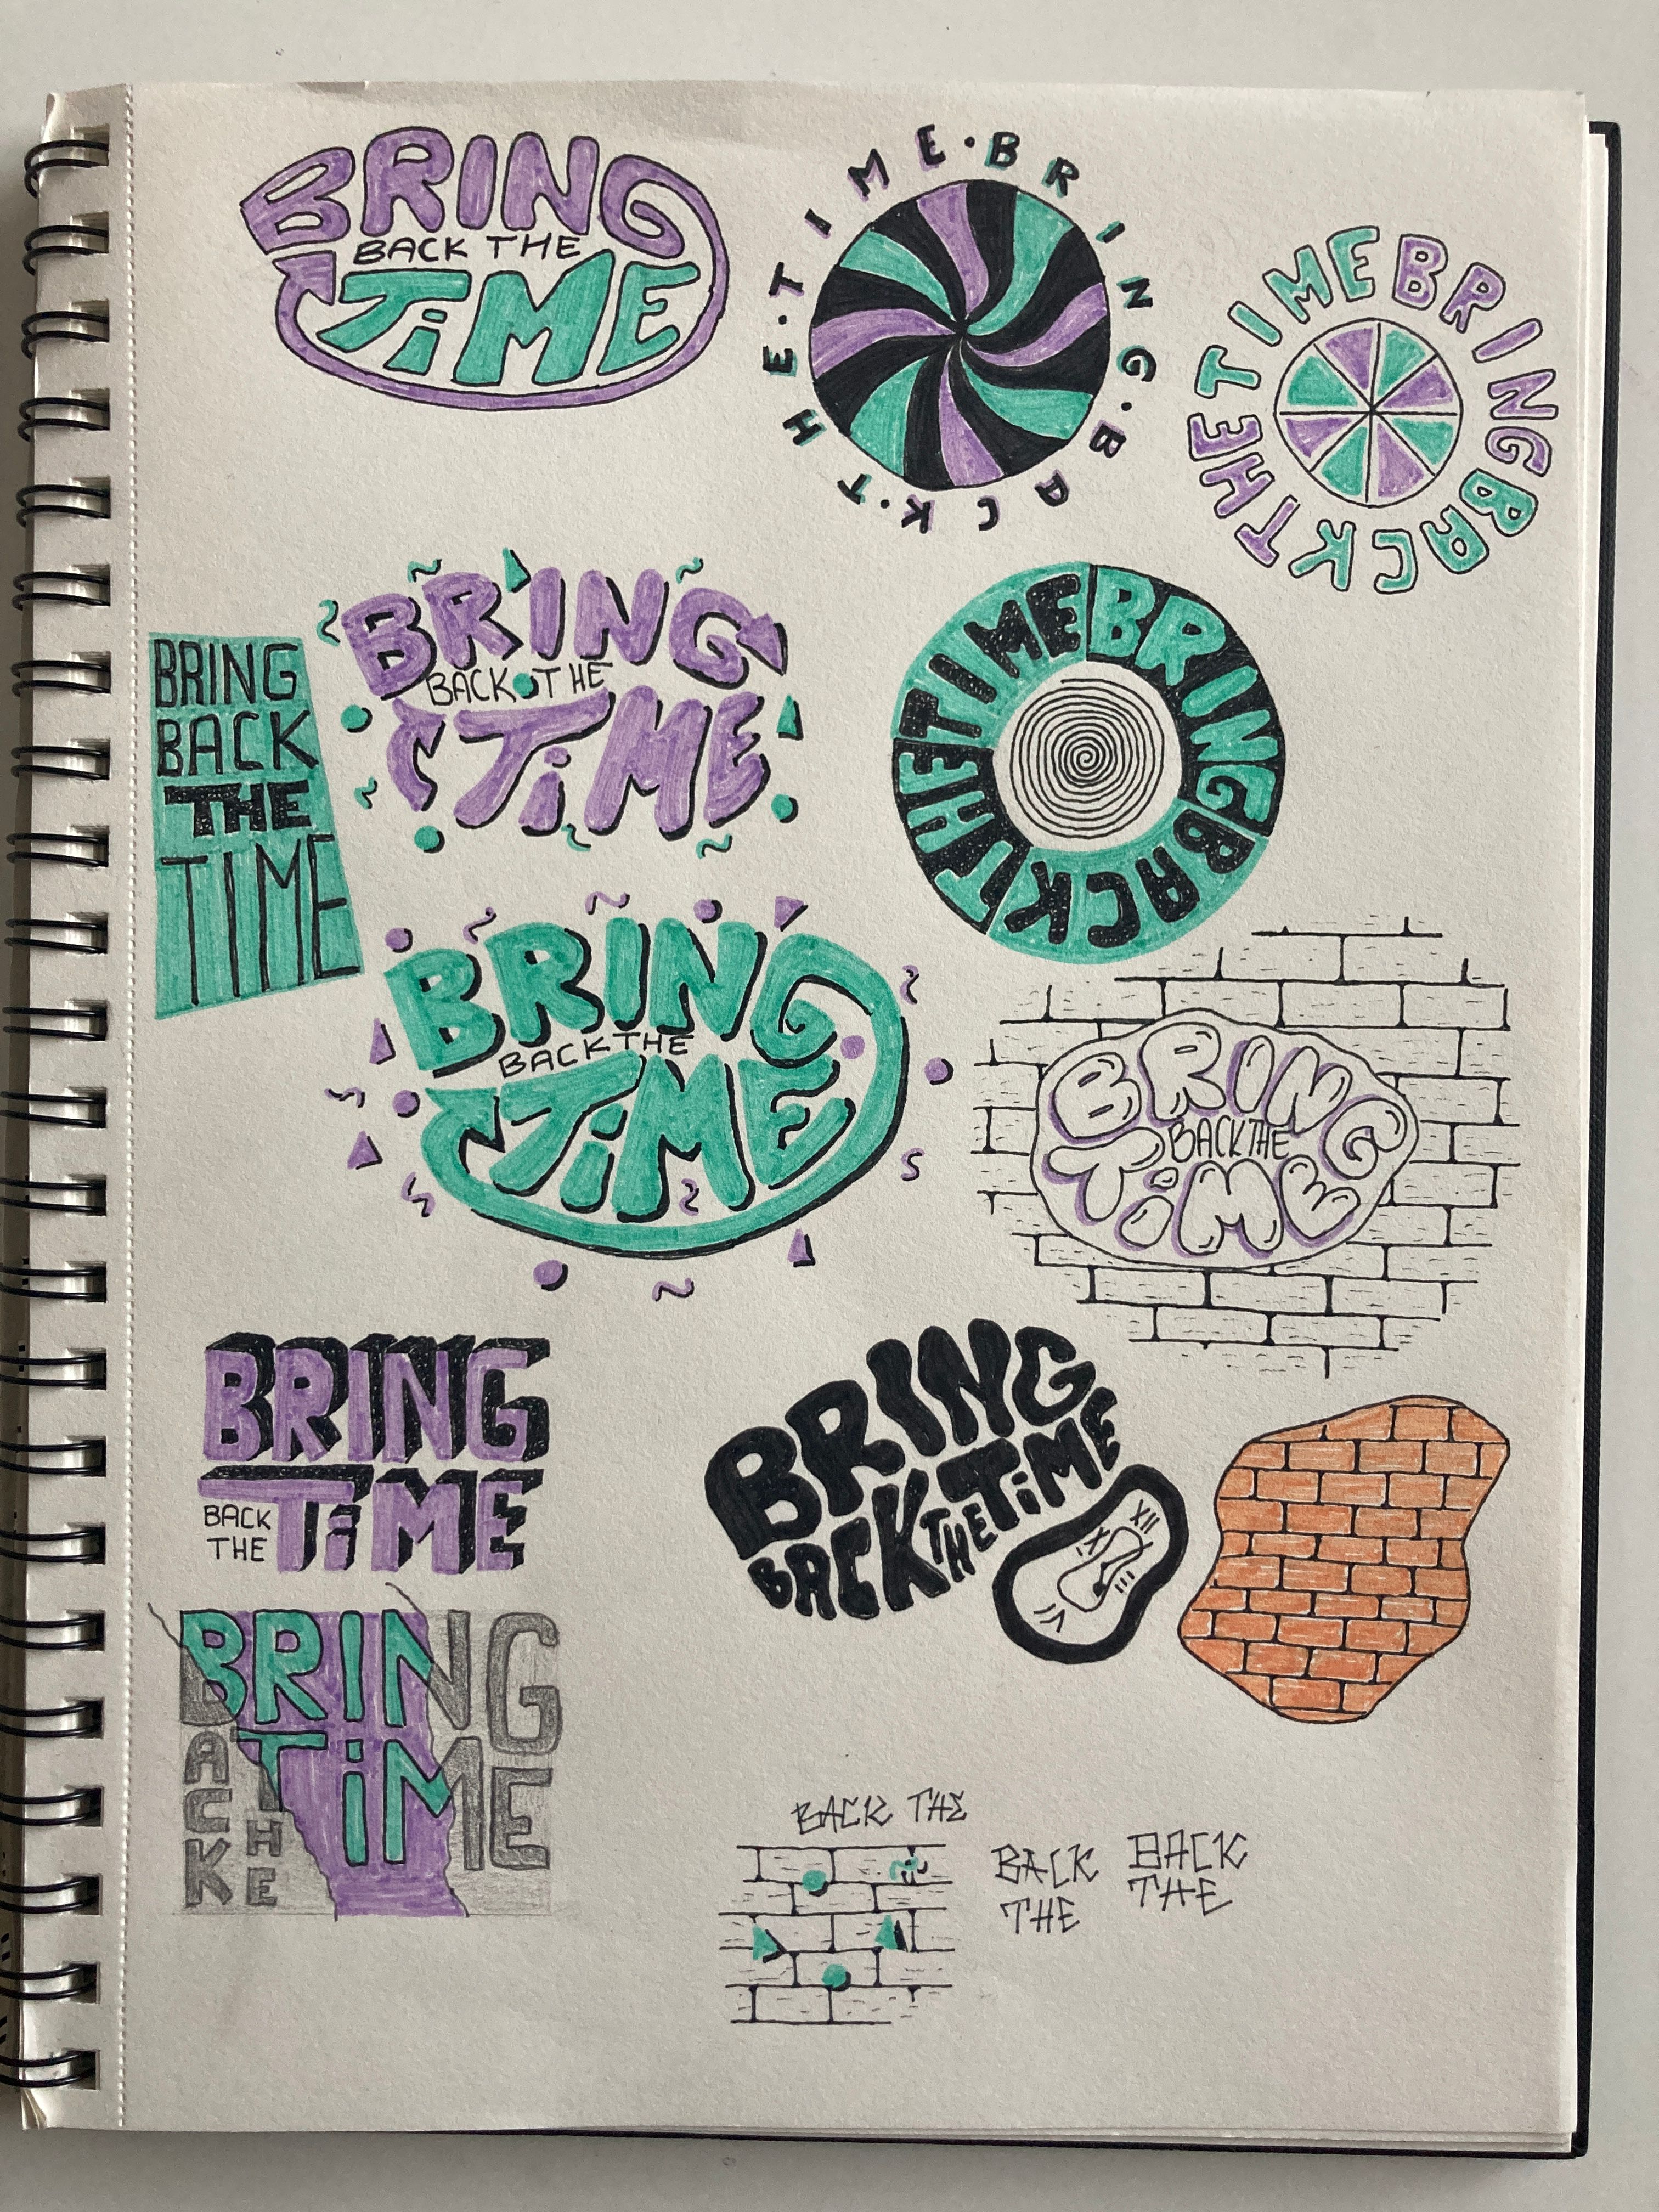 BRING
BACK THE
TiME
BRING·BACK·THE·TIME·
BRINGBACKTHETIME
BRING
BACK
THE
TIME
BRING
BACK·THE
TiME
BRINGBACKTHETIME
BRING
BACK THE
TiME
BRING
BACK THE
TiME
BRING
BACK
THE
TiME
BRING
BACK THE TiME
IX XII III VI
BRING
TiME
BACK
THE
BACK THE
BACK
THE
BACK
THE